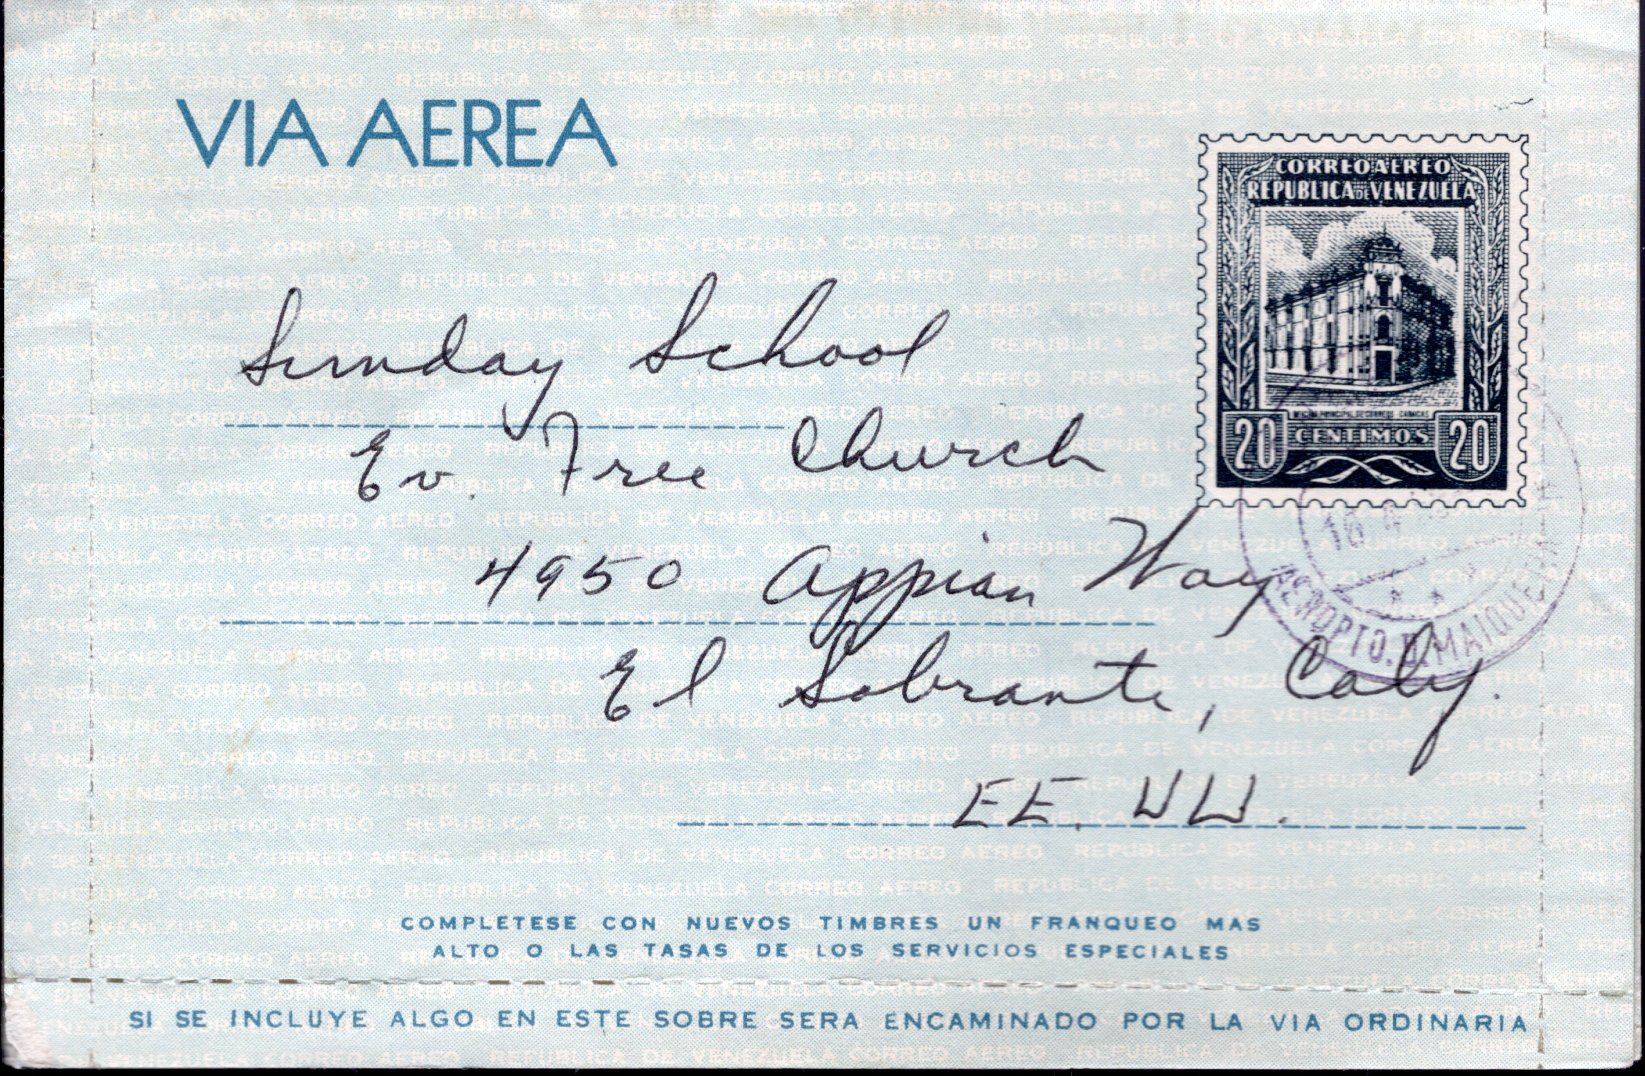 VIA AEREA
CORREO AEREO
REPUBLICA DE VENEZUELA
OFICINA PRINCIPAL DE CORREOS - CARACAS
20 CENTIMOS 20
Sunday School
Ev. Free Church
4950 Appian Way
El Sobrante, Calif.
EE. UU.
AEROPTO. D. MAIQUETIA
COMPLETESE CON NUEVOS TIMBRES UN FRANQUEO MAS
ALTO O LAS TASAS DE LOS SERVICIOS ESPECIALES
SI SE INCLUYE ALGO EN ESTE SOBRE SERA ENCAMINADO POR LA VIA ORDINARIA
REPUBLICA DE VENEZUELA CORREO AEREO